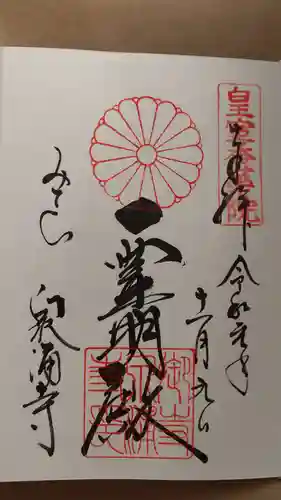 皇室香華院
奉拝
令和元年
十一月九日
霊明殿
みてら
泉涌寺